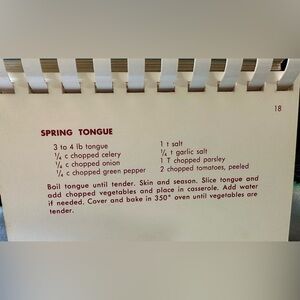 18
SPRING TONGUE
3 to 4 lb tongue
¼ c chopped celery
¼ c chopped onion
¼ c chopped green pepper
1 t salt
¼ t garlic salt
1 T chopped parsley
2 chopped tomatoes, peeled
Boil tongue until tender. Skin and season. Slice tongue and
add chopped vegetables and place in casserole. Add water
if needed. Cover and bake in 350° oven until vegetables are
tender.